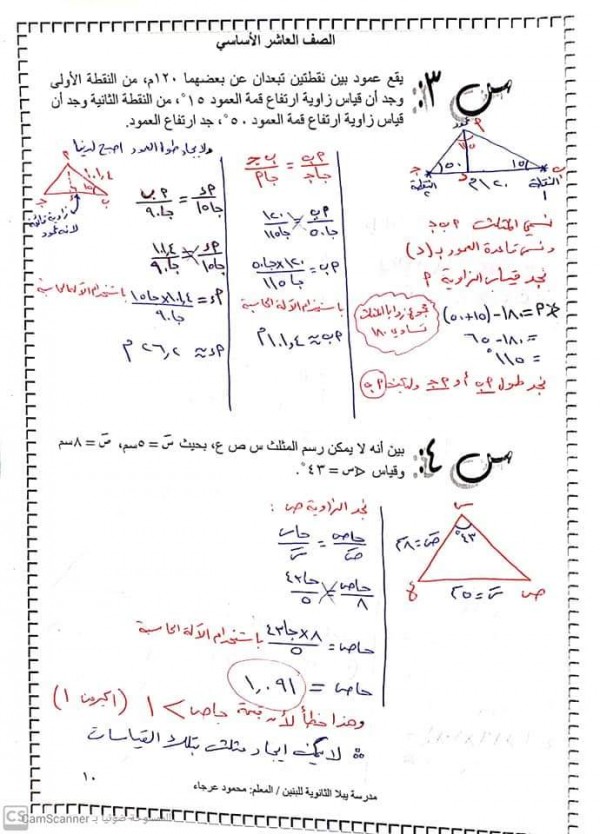 الصف العاشر الأساسي
س٣:
يقع عمود بين نقطتين تبعدان عن بعضهما ١٢٠م، من النقطة الأولى
وجد أن قياس زاوية ارتفاع قمة العمود ١٥°، من النقطة الثانية وجد أن
قياس زاوية ارتفاع قمة العمود ٥٠°، جد ارتفاع العمود.
عمود
م
١٥°
٥٠°
ب
جـ
د
١٢٠م
النقطة ١
النقطة ٢
نسمي المثلث م ب جـ
ونسمي قاعدة العمود بـ (د)
نجد قياس الزاوية م
مجموع زوايا المثلث تساوي ١٨٠
م = ١٨٠ - (١٥ + ٥٠)
= ١٨٠ - ٦٥
= ١١٥°
نجد طول م ب أو م جـ وليكن م ب
م ب / جا جـ = ب جـ / جا م
م ب / جا ٥٠ = ١٢٠ / جا ١١٥
م ب = ١٢٠ × جا ٥٠ / جا ١١٥
باستخدام الآلة الحاسبة
م ب ≈ ١٠١,٤ م
ولايجاد طول العمود اصبح لدينا
م
١٠١,٤
١٥
ب
جـ
زاوية قائمة
لانه عمود
م د / جا ١٥ = م ب / جا ٩٠
م د / جا ١٥ = ١٠١,٤ / جا ٩٠
م د = ١٠١,٤ × جا ١٥ / جا ٩٠ باستخدام الآلة الحاسبة
م د ≈ ٢٦,٢ م
س٤:
بين أنه لا يمكن رسم المثلث س ص ع، بحيث سَ = ٥سم، صَ = ٨سم
وقياس >س = ٤٣°.
س
٤٣°
صَ = ٨
ع
سَ = ٥
ص
نجد الزاوية ص :
جاص / صَ = جاس / سَ
جاص / ٨ = جا٤٣ / ٥
جاص = ٨ × جا٤٣ / ٥ باستخدام الآلة الحاسبة
جاص = ١,٠٩١
وهذا خطأ لأنه قيمة جاص > ١ (اكبر من ١)
∴ لا يمكن ايجاد مثلث بتلك القياسات
١٠
مدرسة يبلا الثانوية للبنين / المعلم: محمود عرجاء
CS
CamScanner الممسوحة ضوئيا بـ